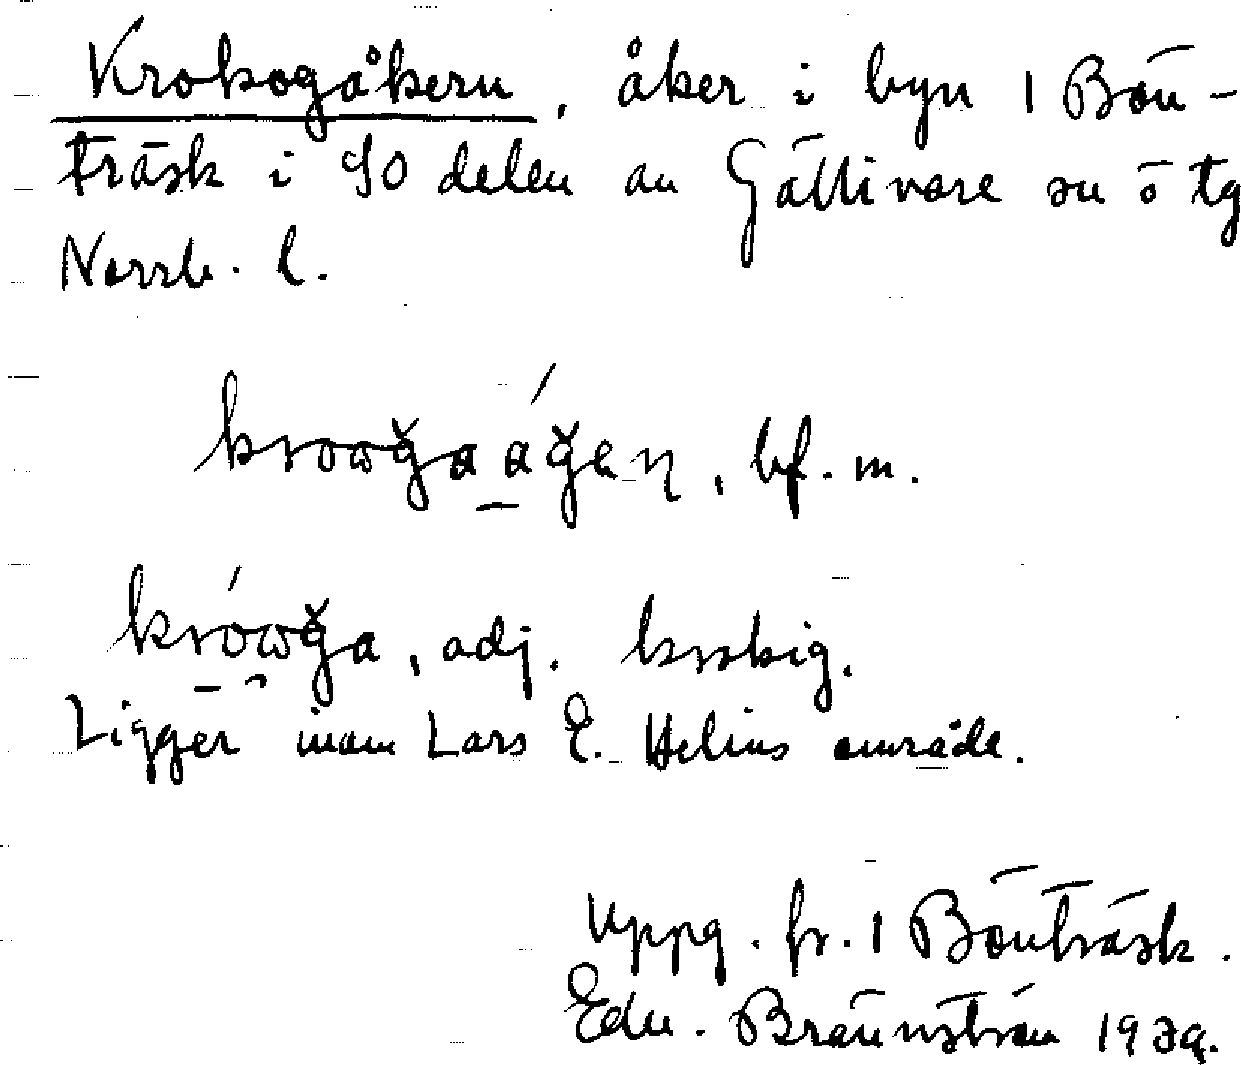 Krokogåkern, åker i byn 1 Bön-
träsk i SO delen av Gällivare sn ö tg
Norrb. l.
krowğa ágen, bf. m.
krówğa, adj. krokig.
Ligger inom Lars E. Helins område.
Uppg. fr. 1 Bönträsk.
Edv. Brännström